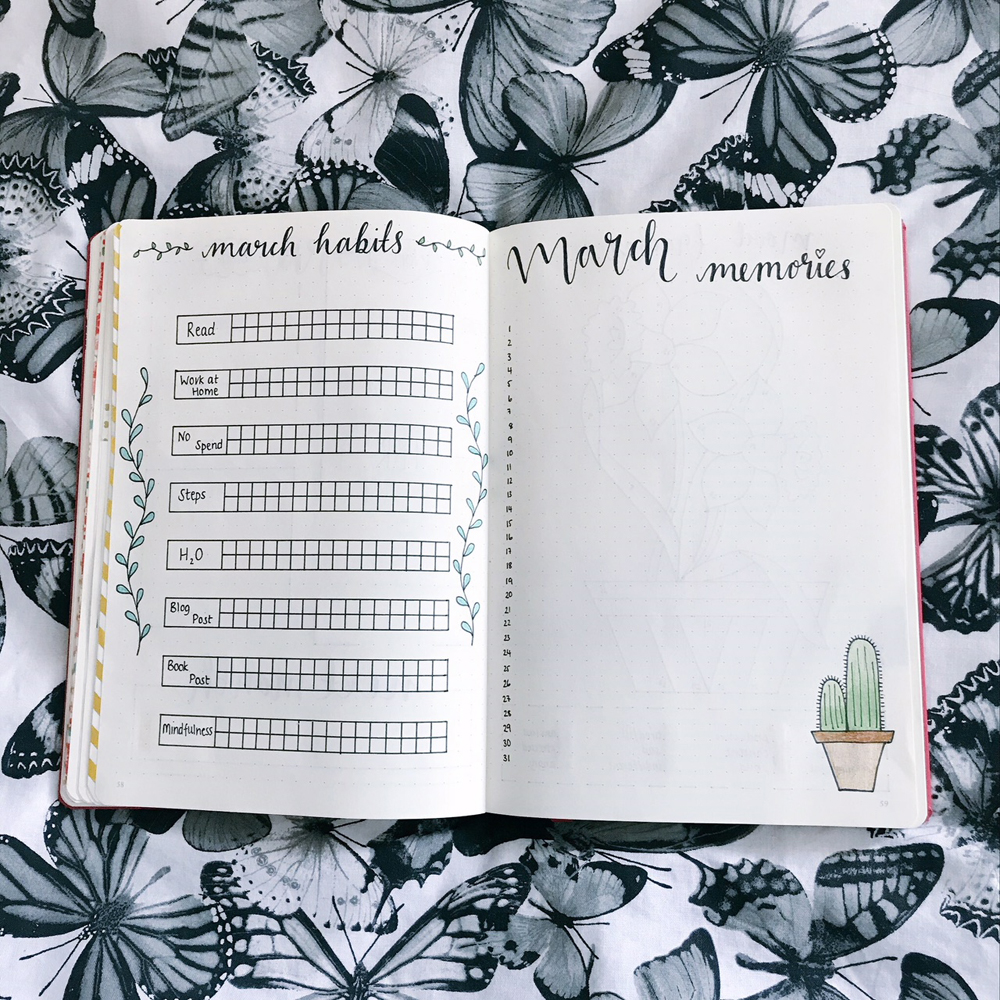 march habits
Read
Work at
Home
No
Spend
Steps
H₂O
Blog
Post
Book
Post
Mindfulness
March memories
1
2
3
4
5
6
7
8
9
10
11
12
13
14
15
16
17
18
19
20
21
22
23
24
25
26
27
28
29
30
31